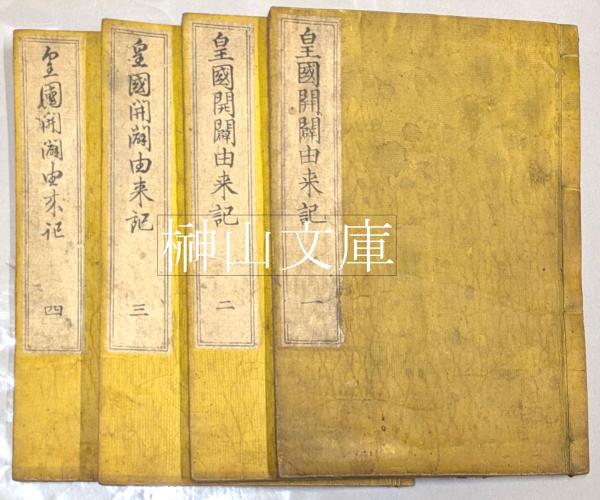 皇國開闢由来記
一
皇國開闢由来記
二
皇國開闢由来記
三
皇國開闢由来記
四
榊山文庫